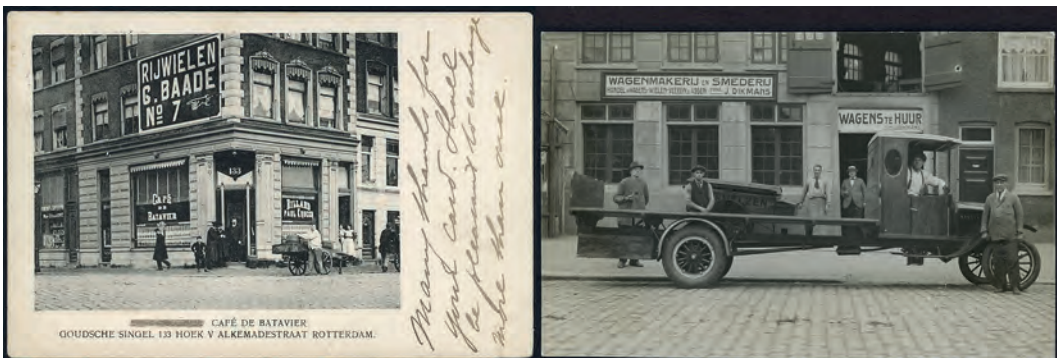 RIJWIELEN
G. BAADE
No 7
133
Café
DE
BATAVIER
BILLARD
CAFÉ DE BATAVIER
GOUDSCHE SINGEL 133 HOEK V ALKEMADESTRAAT ROTTERDAM.
Many thanks for
your card. Shall
be pleased to exchange
more than once
WAGENMAKERIJ EN SMEDERIJ
J. DIKMANS
WAGENS TE HUUR